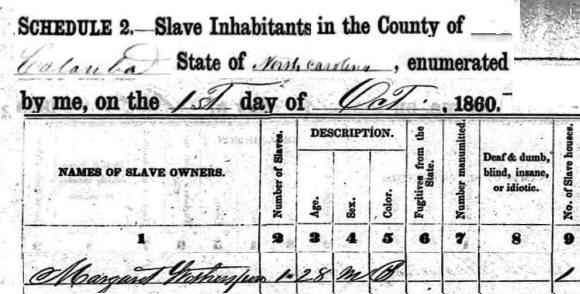 SCHEDULE 2.—Slave Inhabitants in the County of
Catawba State of North Carolina, enumerated
by me, on the 1st day of Oct., 1860.
NAMES OF SLAVE OWNERS.
Number of Slaves.
DESCRIPTION.
Age.
Sex.
Color.
Fugitives from the State.
Number manumitted.
Deaf & dumb, blind, insane, or idiotic.
No. of Slave houses.
1 2 3 4 5 6 7 8 9
Margaret 1 28 M B 1